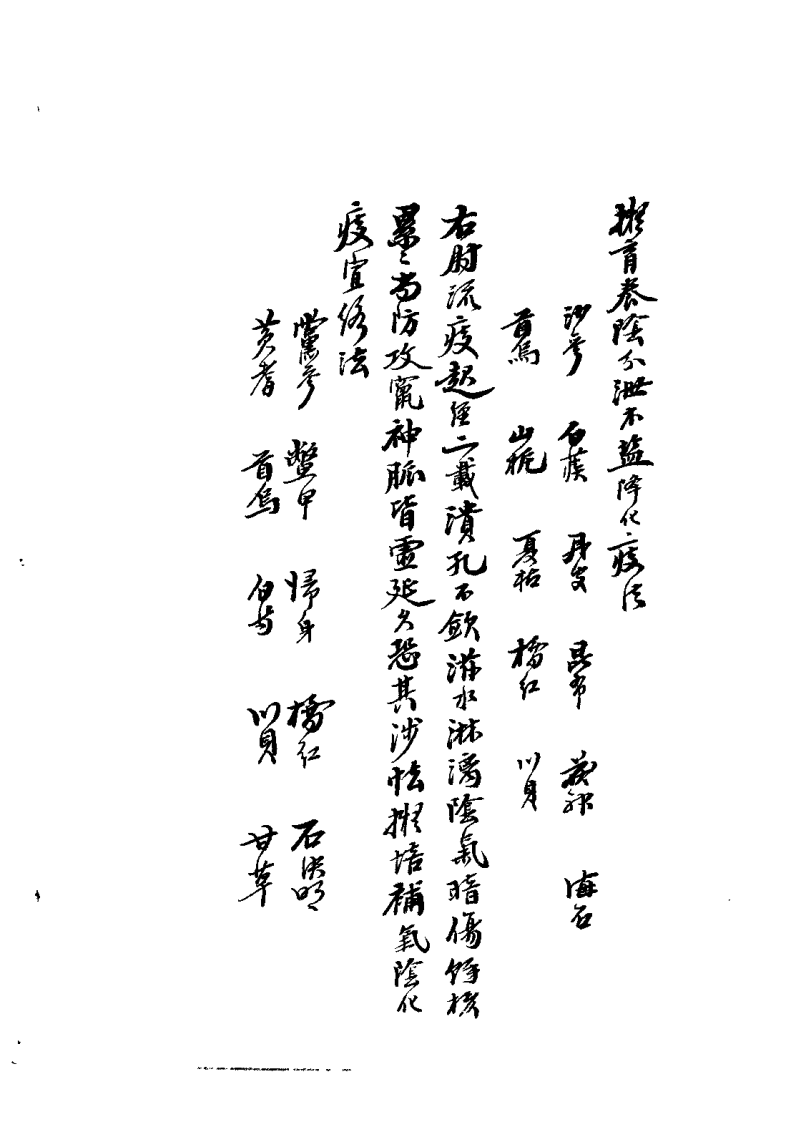 擬育養陰分泄木鹽降化痰法
沙參 石萸 丹皮 昆布 茯神 海石
首烏 山梔 夏枯 橘红 川貝
右肘流痰起經二載潰孔不歛滋水淋漓陰氣暗傷餘核
累々尚防攻竄神脈皆虛延久恐其涉怯擬培補氣陰化
痰宣络法
黨參 鱉甲 歸身 橘红 石决明
黄耆 首烏 白芍 川貝 甘草